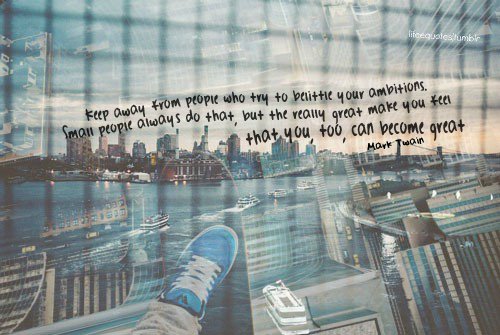 lifeequotes.tumblr
Keep away from people who try to belittle your ambitions.
Small people always do that, but the really great make you feel
that you too, can become great
Mark Twain